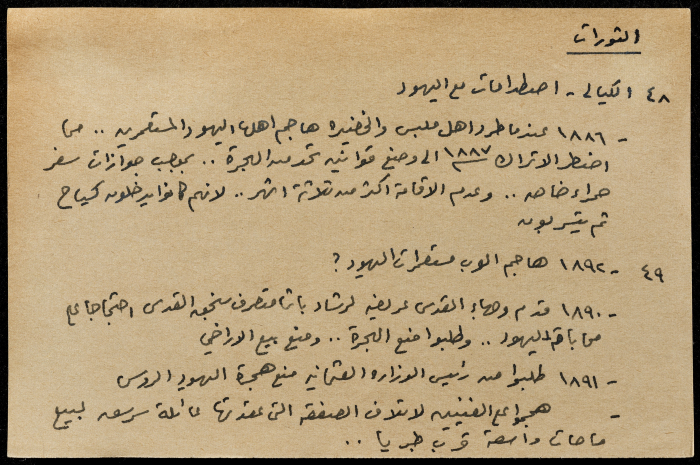 الثورات
٤٨ الكيالي - اصطدامات مع اليهود
- ١٨٨٦ عندما طرد اهل ملبس والخضيره هاجم اهلها اليهود المستعمرين .. مما
اضطر الاتراك ١٨٨٧ الى وضع قوانين تحد من الهجرة .. بموجب جوازات سفر
حمراء خاصه .. وعدم الاقامة اكثر من ثلاثة اشهر .. لانهم كانوا يدخلون كسياح
ثم يتسربون
٤٩ - ١٨٩٢ هاجم العرب مستعمرات اليهود ؟
- ١٨٩٠ قدم وجهاء القدس عريضه لرشاد باشا متصرف سنجق القدس احتجاجا على
محاباته لليهود .. وطلبوا منع الهجرة .. ومنع بيع الاراضي
- ١٨٩١ طلبوا من رئيس الوزاره العثمانيه منع هجرة اليهود الروس
- هجوا على الفنيين لاتلاف الصفقه التي عقدتها عائلة سرسق لبيع
مساحات واسعة قرب طبريا ..